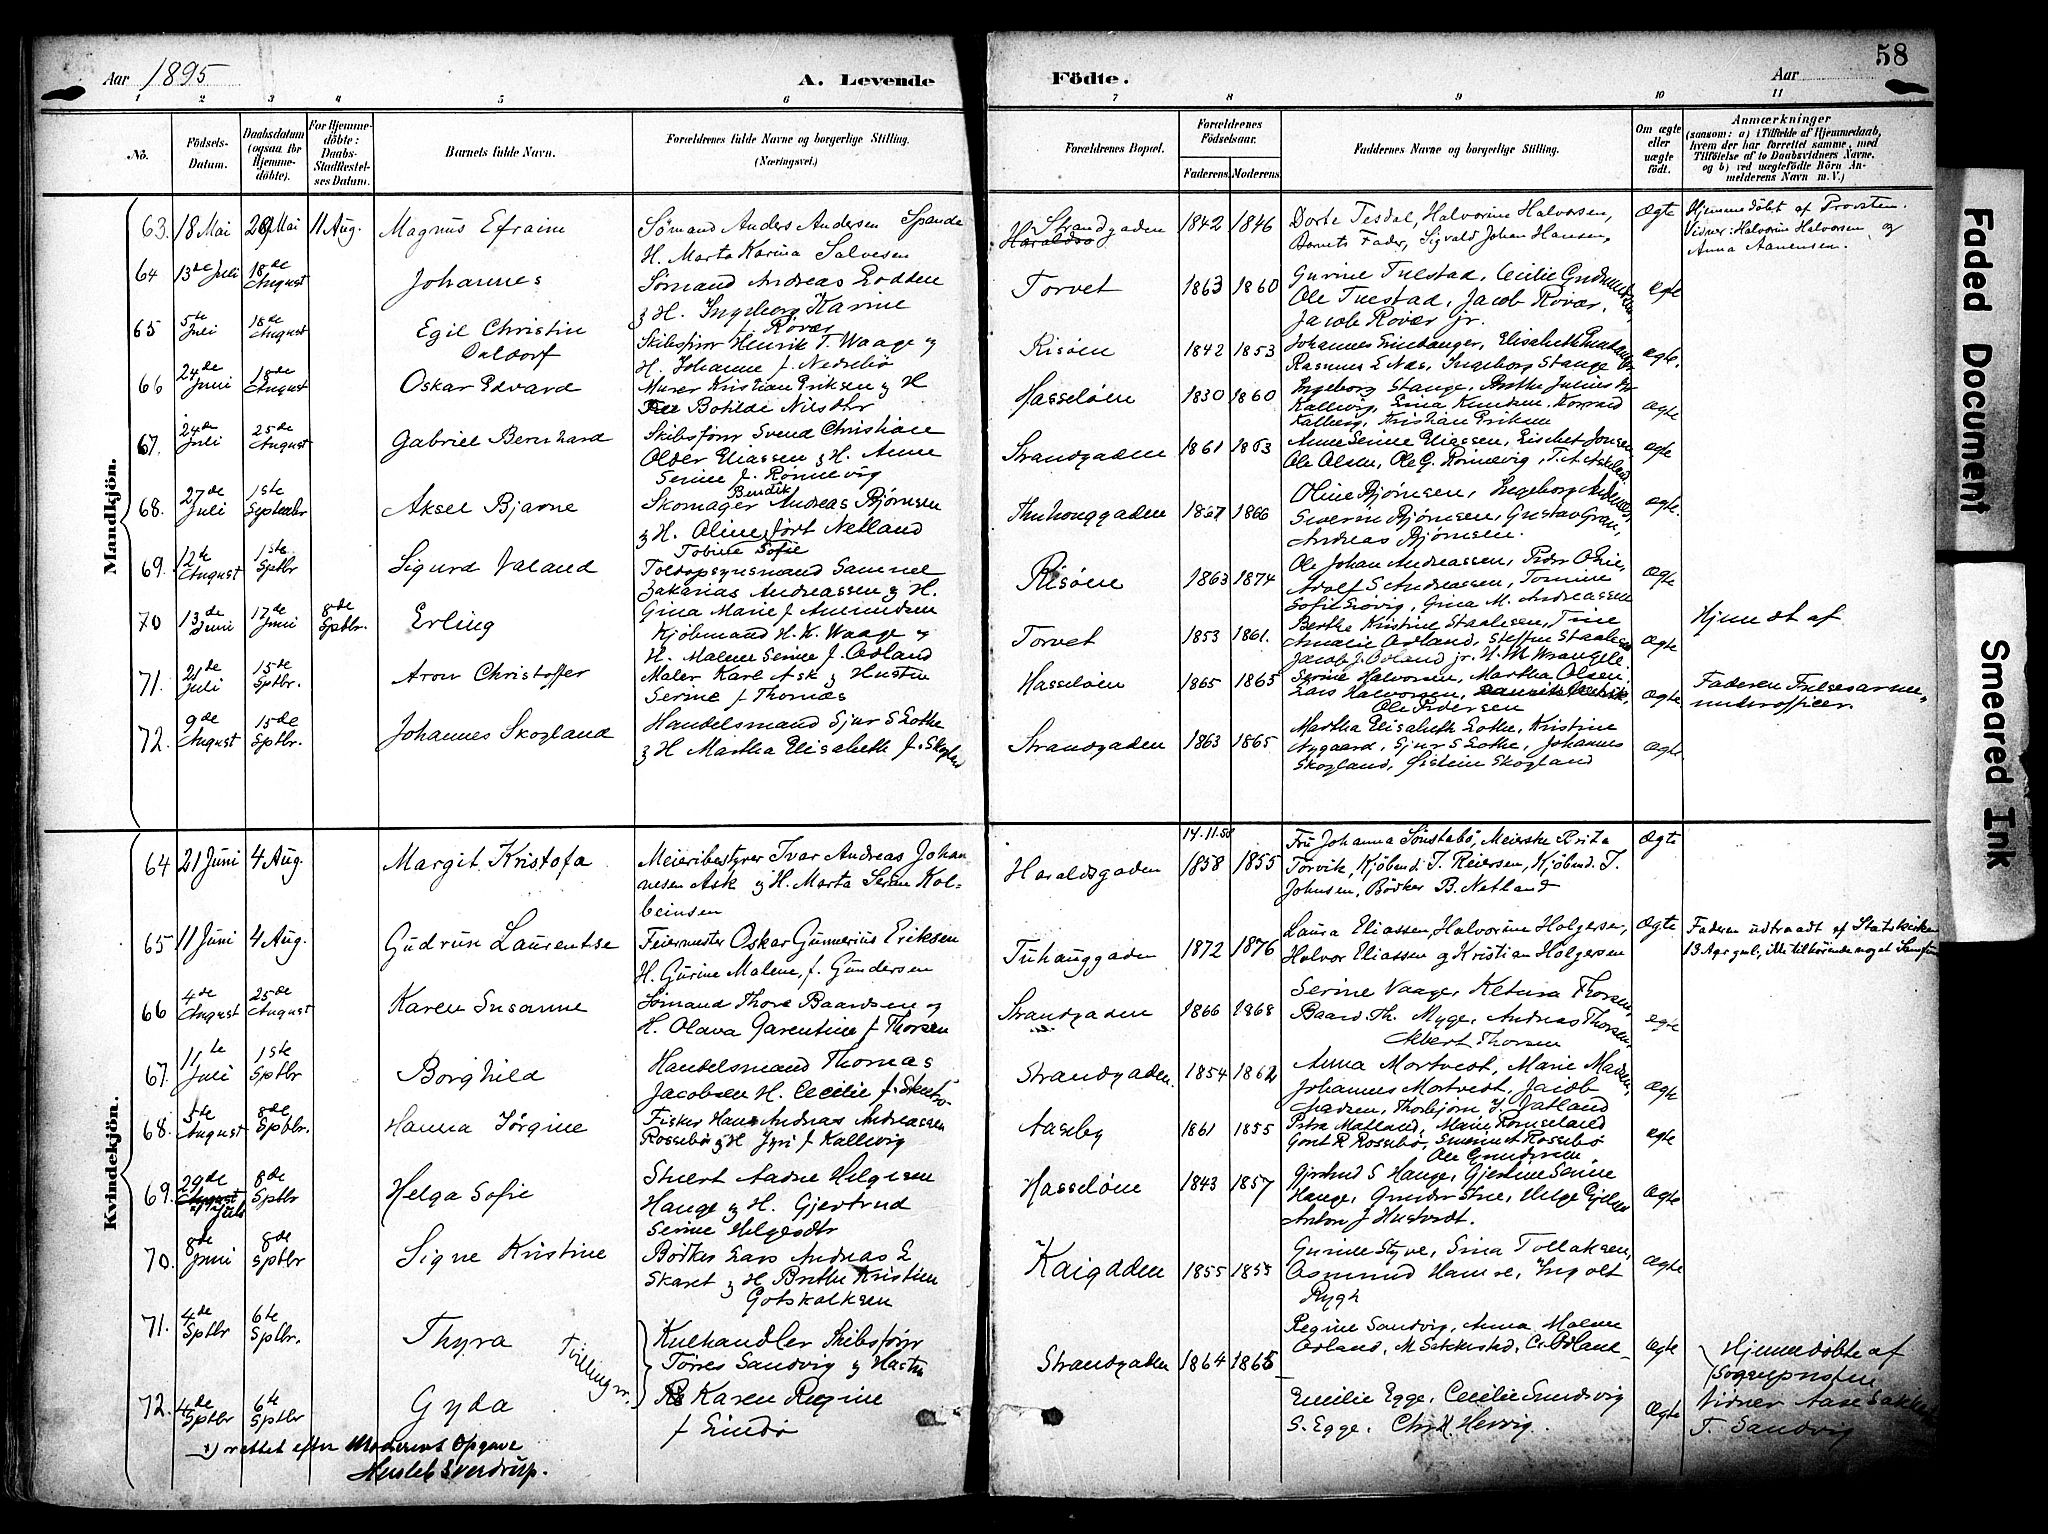 58
Aar 1895
A. Levende Födte.
Aar
1 2 3 4 5 6 7 8 9 10 11
No.
Födsels-Datum.
Daabsdatum (ogsaa for Hjemme-döbte).
For Hjemme-döbte: Daabs-Stadfæstel-ses Datum.
Barnets fulde Navn.
Forældrenes fulde Navne og borgerlige Stilling. (Næringsvei.)
Forældrenes Bopæl.
Forældrenes Födselsaar.
Faderens. Moderens.
Faddernes Navne og borgerlige Stilling.
Om ægte eller uægte födt.
Anmærkninger
(saasom: a) i Tilfælde af Hjemmedaab, hvem der har forrettet samme, med Tilföielse af to Daabsvidners Navne, og b) ved uægtefödte Börn An-melderens Navn m. V.)
Mandkjön.
63. 18 Mai 20 Mai 11 Aug. Magnus Efraim
Sømand Anders Andersen Spande
H. Marta Karina Salvesen
Strandgaden 1842 1846
Dorte Tesdal, Halvorine Halvorsen,
Barnets Fader, Sigvald Johan Hansen,
Ægte
Hjemmedöbt af Provsten.
Vidner: Halvorine Halvorsen, og
Anna Aanensen.
64 13de Juli 18de August Johannes
Sømand Andreas Lodden
& H. Ingeborg Karine
f. Røvær
Torvet 1863 1860
Gurine Tuestad, Cecilie Gudmundsen,
Ole Tuestad, Jacob Røvær,
Jacob Røvær jr.
ægte
65 5te Juli 18de August Egil Christin Daldorf
Skibsfører Henrik T. Waage og
H. Johanne f. Nedrebø
Risøen 1842 1853
Rasmus E Næs, Ingeborg Stange
ægte.
66 24de Juni 18de August Oskar Edvard
Murer Kristian Eriksen & H
Botilde Nilsdtr
Hasseløen 1830 1860
Ingeborg Stange, Berthe Juline
Kallevig, Erina Knudsen, Konrad
Kalberg, Kristian Eriksen
Ægte
67. 24de Juli 25de August Gabriel Bernhard
Skibsfører Svend Christian
Older Eliassen & H. Anne
Serine f. Rønnevig
Strandgaden 1861 1863
Anne Serine Eliassen, Lisbet Jonsen
Ole Olsen, Ole G. Rønnevig, T. A. Askeland
Ægte
68. 27de Juli 1ste Septembr Aksel Bjarne
Skomager Bendik Andreas Bjørnsen
& H. Oline født Netland
Thuhauggaden 1867 1866
Oline Bjørnsen, Ingeborg Andersen,
Severin Bjørnsen, Gustav Gran,
Andreas Bjørnsen.
Ægte.
69. 12te August 1ste Sptbr Sigurd Valand
Tobine Sofie
Toldopsynsmand Samuel
Zakarias Andreassen & H.
Gina Marie f. Amundsen
Risøen 1863 1874
Ole Johan Andreassen, Peder Olsen,
Adolf S. Andreassen, Tomine
Sofie Siøvig, Gina M. Andreassen
Ægte
70 13de Juni 17de Juni 8de Sptbr. Erling
Kjøbmand H. K. Waage og
H. Malene Serine f. Odland
Torvet 1853 1861.
Berthe Kristine Staalesen, Trine
Amalie Odland, Steffen Staalesen
Jacob J. Odland jr. H. M. Wrangell.
Ægte
Hjemdt af
71. 21de Juli 15de Sptbr. Aron Christoffer
Maler Karl Ask & Hustru
Serine f Thomas
Hasseløen 1865 1865
Serine Halvorsen, Martha Olsen,
Lars Halvorsen,
Ole Pedersen
Ægte
Faderen Frelsesarme-
underofficer.
72. 9de August 15de Sptbr. Johannes Skogland
Handelsmand Sjur S Lothe
& H Martha Elisabeth f. Skogland
Strandgaden 1863 1865
Martha Elisabeth Lothe, Kristine
Nygaard, Sjur S Lothe, Johannes
Skogland, Øistein Skogland
Ægte.
Kvindekjön.
64 21 Juni 4 Aug. Margit Kristofa
Meieribestyrer Ivar Andreas Johan
nesen Ask & H. Marta Serine Kol-
beinsen
Haraldsgaden 14.11.58 1858 1855
Fru Johanna Sønstabø, Meierske Brita
Torvik, Kjøbmd. T. Reiersen, Kjøbmd. T.
Johnsen, Bødker B. Netland
Ægte
65 11 Juni 4 Aug. Gudrun Laurentse
Feiermester Oskar Gunnerius Eriksen
H. Gurine Malene, f. Gundersen
Tuhauggaden 1872 1876
Laura Eliassen, Halvorine Holgersen,
Halvor Eliassen og Kristian Holgersen
Ægte
Faderen udtraadt af Statskirken
13 Apr gul, ikke tilhørende noget Samfund
66 4de August 25de August Karen Susanne
Sømand Thore Baardsen og
H. Olava Garentine f Thorsen
Strandgaden 1866 1868
Serine Vaage, Ketura Thorsen,
Baard Th. Myge, Andreas Thorsen,
Albert Thorsen
ægte
67. 11te Juli 1ste Sptbr Borghild
Handelsmand Thomas
Jacobsen H. Cecilie f.
Strandgaden. 1854 1862
Anna Mortvedt, Marie Madsen,
Johannes Mortvedt, Jacob
Madsen, Thorbjørn J. Vatland
Ægte
68. 5te August 8de Sptbr. Hanna Jørgine
Fisker Hans Andreas Andreassen
Rossebø & H Jyri f Kallevig
Aaseby 1861 1855
Petra Matland, Marie Rømseland
Gort R Rossebø, Rossebø
Ole Gundersen
ægte
69. 29de August x) Juli 8de Sptbr Helga Sofie
Stuert Aadne Helgesen
Hauge & H. Gjertrud
Serine Helgesdtr
Hasseløen 1843 1857
Gjertrud S Hauge, Gjertine Serine
Hauge, Gunder Stue, Helge
Anton J Hustvedt.
Ægte
70. 8de Juni 8de Sptbr Signe Kristine
Bødker Lars Andreas L
Skaret & H. Berthe Kristien
Gotskalksen
Kaigaden 1855 1855
Gurine Styve, Sina Tollaksen,
Osmund Hamre, Ingolt
Rygh
Ægte
71. 4de Sptbr 6te Sptbr. Thyra
Tvillinger.
Kulhandler Skibsfører
Tørres Sandvig & Hustru
Karen Regine
f Lindø
Strandgaden 1864 1865
Regine Sandvig, Anna Malene
Odland, M Sakkestad, C. Odland
Ægte
Hjemmedöbte af
Sognepresten
72. 4de Sptbr 6te Sptbr Gyda
Emilie Egge, Cecilie Sundvig
S. Egge, Chr. H. Hervig.
Ægte
Vidner Aase Sakkestad
T. Sandvig
x) rettet efter Moderens Opgave
Husleb Sverdrup.
Faded Document
Smeared Ink